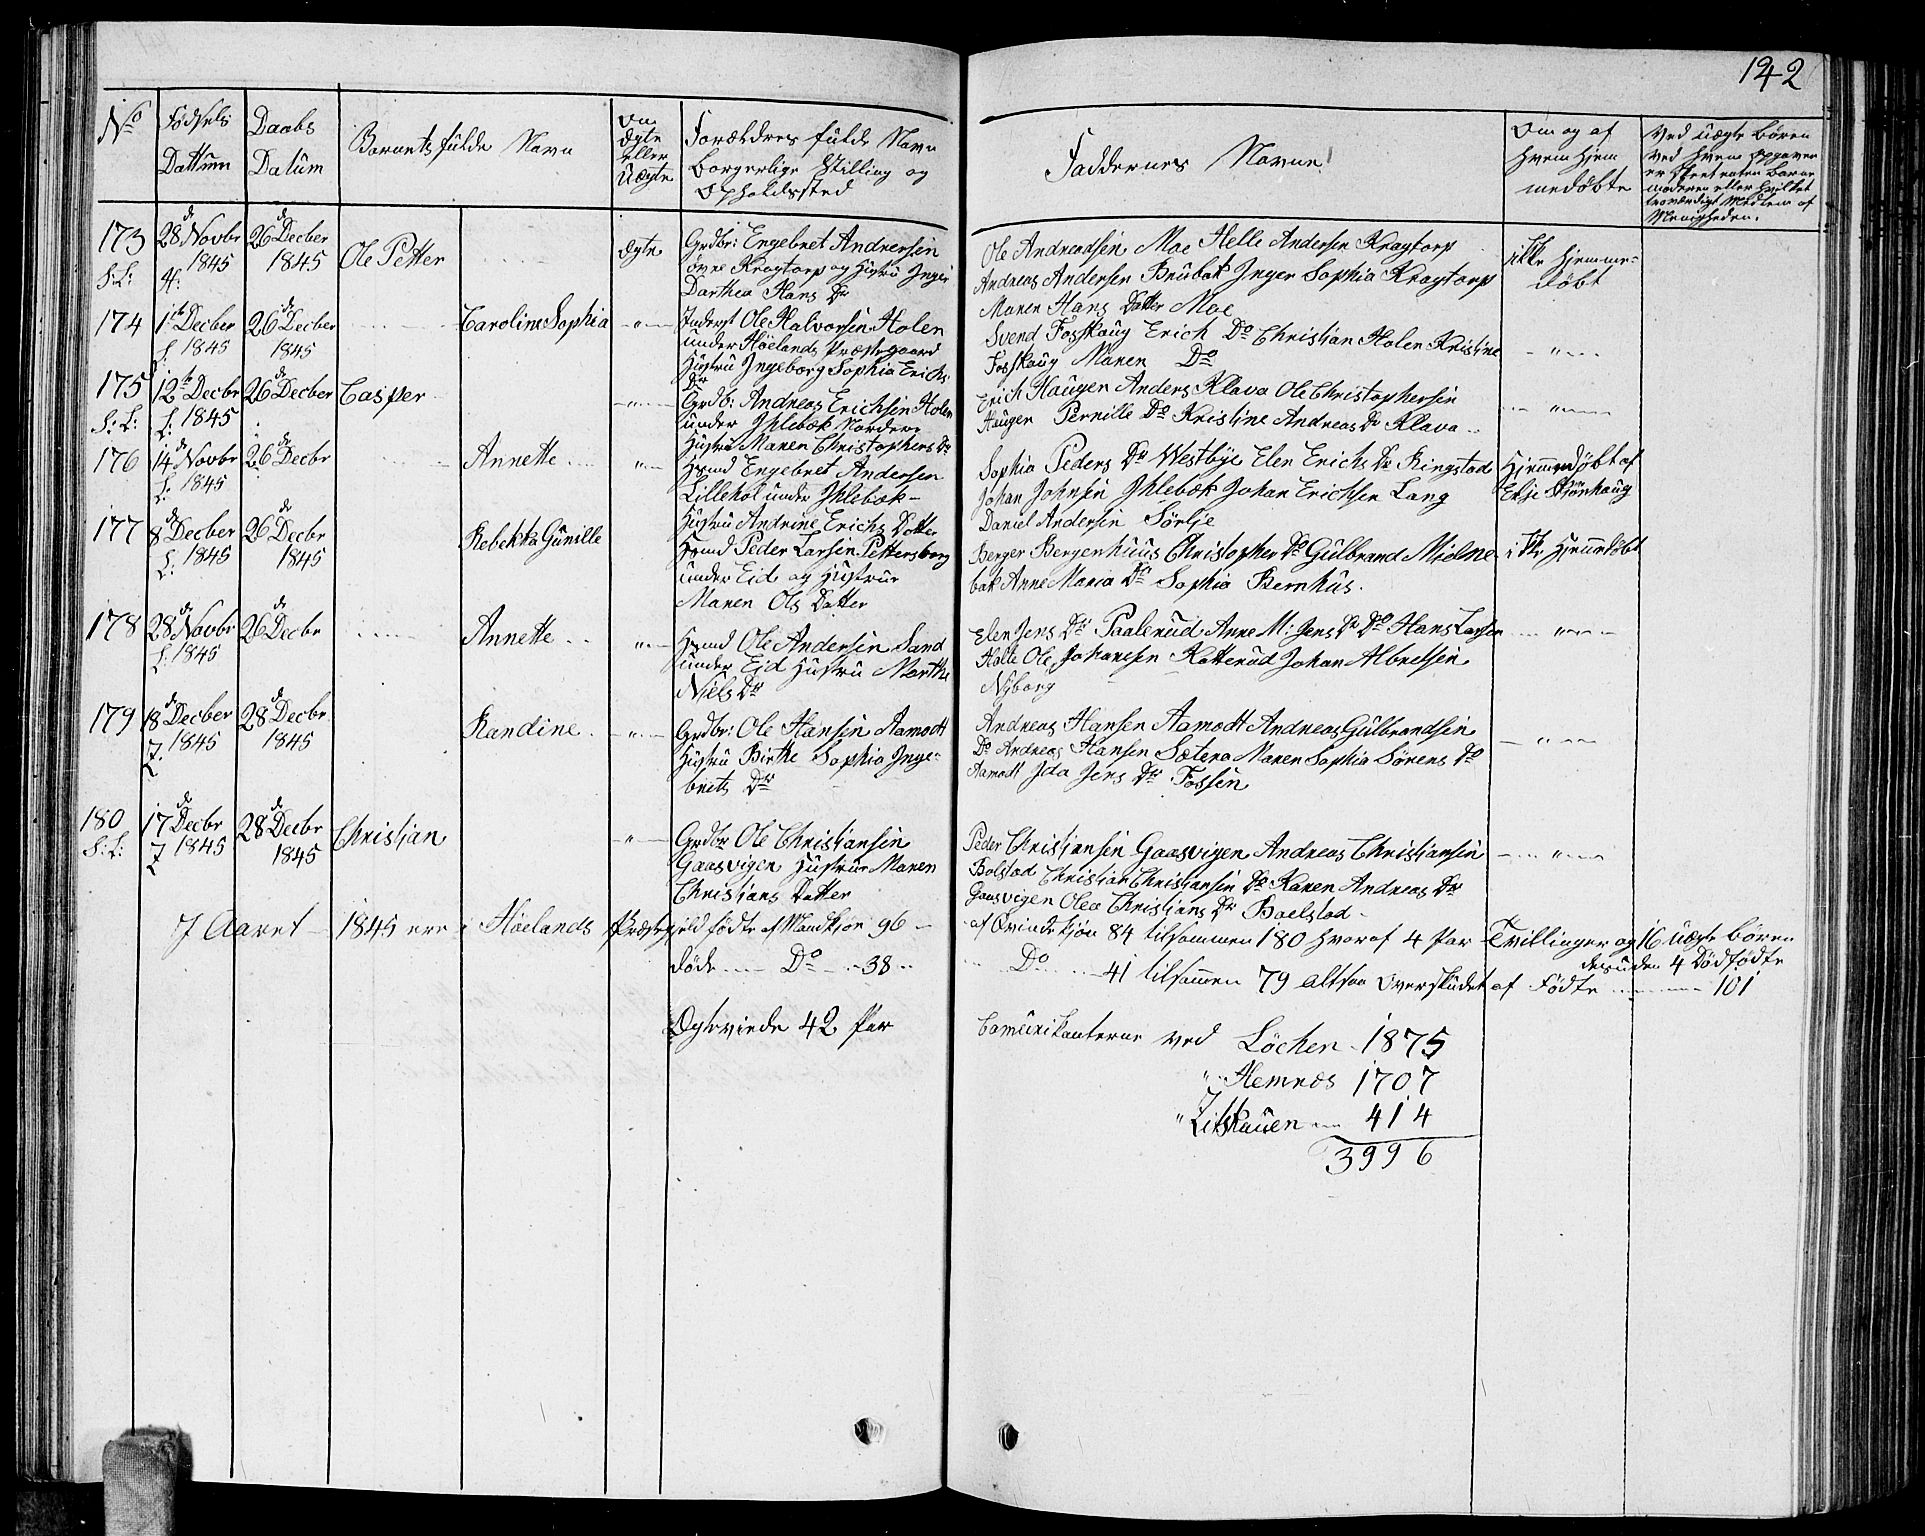 142
No
Fødsels
Dattum
Daabs
Datum
Barnets fulde Navn
Om
Ægte
eller
Uægte
Forældres fulde Navn
Borgerlige Stilling og
Opholdssted
Faddernes Navne
Om og af
hvem hjem
medøbte
Ved uægte Børen
ved hvem opgaven
er skeet enten Barne
moderen eller hvilket
troværdigt Medlem af
Menigheden.
173
28de Novbr
1845
26de Decber
1845
Ole Petter
Ægte
Grdbr: Engebret Andrersen
øvre Kragtorp og Hustru Inger
Darthea Hans Dr
Ole Andreadsen Moe Helle Andersen Kragtorp
Andreas Andersen Brubak Inger Sophia Kragtorp
Maren Hans Datter Moe
ikke hjemme-
døbt
174
1ste Decber
1845
26de Decber
1845
Caroline Sophia
Inderst Ole Halvorsen Holen
under Høelands Præstegaard
Hustru Ingeborg Sophia Erichs
Dr
Svend Fosskaug Erich Do Christian Holen Kristine
Fosskaug Maren Do
175
12te Decbr
L: 1845
26de Decber
Casper
Grdb: Andreas Erichsen Holen
under Ihlebæk Nordere
Hustru Maren Christophers Dr
Erich Haugen Anders Klava Ole Christophersen
Haugen Pernille Do Kristine Andreas Dr Klava
176
14de Novbr
L: 1845
26de Decbr
Annette
Hsmd Engebret Andersen
Lillehol under Ihlebæk
Hustru Andrine Erichs Datter
Sophia Peders Dr Westbye Elen Erichs Dr Ringstad
Johan Johnsen Ihlebæk Johan Erichsen Lang
Daniel Andersen Sørlje
Hjemmedøbt af
Elje Stjønhaug
177
8de Decber
L: 1845
26de Decbr
1845
Rebekka Gunille
Hsmd Peder Larsen Pettersborg
under Eid og Hustrue
Maren Ols Datter
Berger Bergenhuus Christopher Do Gulbrand Mielne
bak Anne Maria Do Sophia Bernhus.
ikke Hjemdøbt
178
28de Novbr
L: 1845
26de Decbr
Annette
Hsmd Ole Andersen Sand
under Eid Hustru Marthe
Niels Dr
Elen Jens Dr Paalerud Anne M: Jens Dr Do Hans Larsen
Holte Ole Johansen Katterud Johan Albretsen
Nyborg
179
18de Decber
1845
28de Decbr
1845
Randine
Grdbr: Ole Hansen Aamodt
Hustru Birthe Sophia Inge-
brets Dr
Andreas Hansen Aamodt Andreas Gulbrandsen
Do Andreas Hansen Sætera Maren Sophia Sørens Do
Aamodt Ida Jens Dr Fossen
180
17de Decbr
1845
28de Decbr
1845
Christian
Grdbr Ole Christiansen
Gaasvigen Hustrue Maren
Christians Datter
Peder Christiansen Gaasvigen Andreas Christiansen
Bolstad Christian Christiansen Do Karen Andreas Dr
Gaasvigen Olea Christians Dr Boelstad
I Aaret 1845 ere i Høelands Præstegjeld fødte af Mandkjøn 96 af Qvindekjøn 84 tilsammen 180 hvoraf 4 Par Tvillinger og 16 uægte Børen
desuden 4 Dødfødte
døde Do 38 Do 41 tilsamen 79 altsaa Overskudet af Fødte 101
Ægteviede 42 Par
Comunikanterne ved Løchen 1875
" Hemnæs 1707
" Zitskauen 414
3996